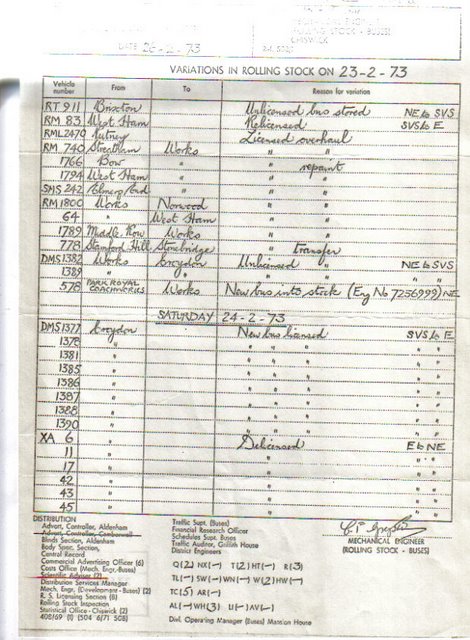 MECHANICAL ENGINEER
(ROLLING STOCK - BUSES)
CHISWICK
DATE 26-2-73
VARIATIONS IN ROLLING STOCK ON 23-2-73
Vehicle number From To Reason for variation
RT 911 Brixton Unlicensed bus stored NE to SVS
RM 83 West Ham Relicensed SVS to E
RML 2470 Putney Licensed overhaul
RM 740 Streatham Works " "
1766 Bow " " repaint
1794 West Ham " " "
SMS 242 Elmers End " " "
RM 1800 Works Norwood " "
64 " West Ham " "
1789 Middle Row Works " "
778 Stamford Hill Stonebridge " transfer
DMS 1382 Works Croydon Unlicensed " NE to SVS
1389 " " " " "
578 PARK ROYAL COACHWORKS Works New bus into stock (Eng No 7256999) NE
SATURDAY 24-2-73
DMS 1377 Croydon New bus licensed SVS to E
1378 " " " " " " "
1381 " " " " " " "
1385 " " " " " " "
1386 " " " " " " "
1387 " " " " " " "
1388 " " " " " " "
1390 " " " " " " "
XA 6 " Delicensed E to NE
11 " " " " "
17 " " " " "
42 " " " " "
43 " " " " "
45 " " " " "
DISTRIBUTION
Advert. Controller, Aldenham
Advert. Controller, Camberwell
Blinds Section, Aldenham
Body Spec. Section,
Central Record
Commercial Advertising Officer (6)
Costs Office (Mech. Engr.-Buses)
Scientific Adviser (2)
Distribution Services Manager
Mech. Engr. (Development - Buses) (2)
R. S. Licensing Section (8)
Rolling Stock Inspection
Statistical Office - Chiswick (2)
408/69 (1) (504 6/71 508)
Traffic Supt. (Buses)
Financial Research Officer
Schedules Supt. Buses
Traffic Auditor, Griffith House
District Engineers
Q(2) NX(-) T(2) HT(-) R(3)
TL(-) SW(-) WN(-) W(2) HW(-)
TC(5) AR(-)
AL(-) WH(3) U(-) AV(-)
Divl. Operating Manager (Buses) Mansion House
MECHANICAL ENGINEER
(ROLLING STOCK - BUSES)